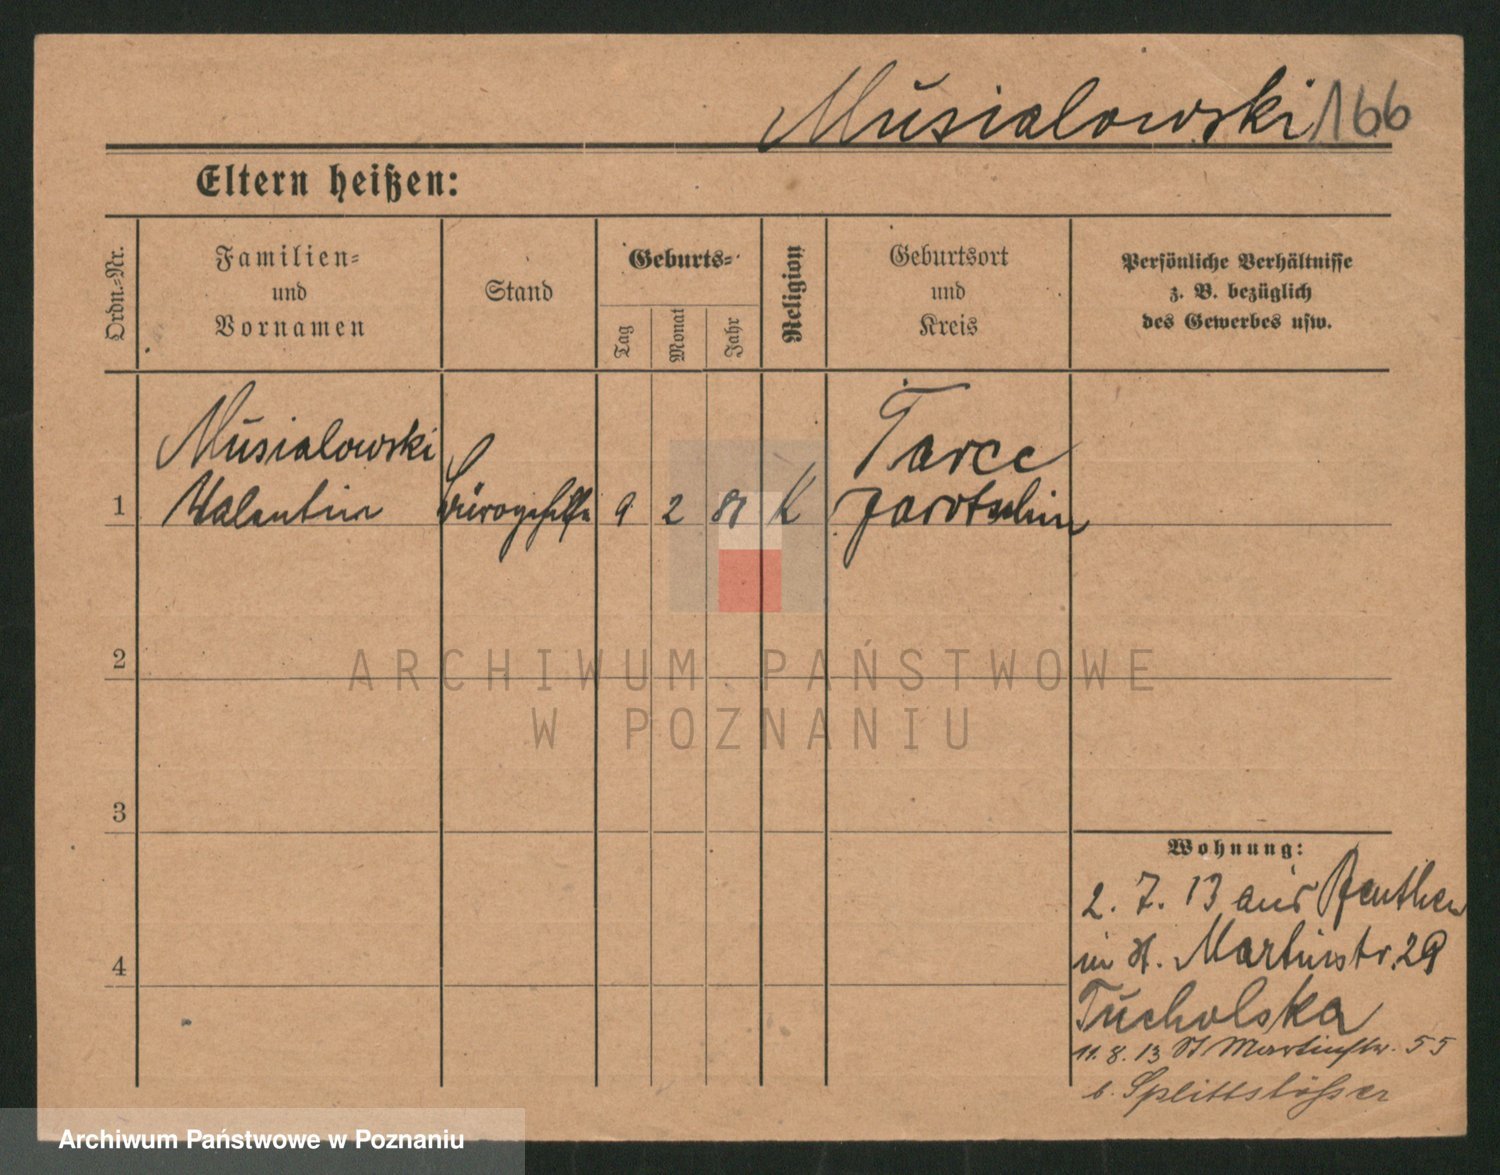 Musialowski 166
Eltern heißen:
Ordn.=Nr.
Familien=
und
Vornamen
Stand
Geburts=
Tag
Monat
Jahr
Religion
Geburtsort
und
Kreis
Persönliche Verhältnisse
z. B. bezüglich
des Gewerbes usw.
Musialowski
1 Valentin Bürogehilfe 9 2 81 K Tarce
Jarotschin
2
3
4
ARCHIWUM PAŃSTWOWE
W POZNANIU
Wohnung:
2. 7. 13 aus Beuthen
in St. Martinstr. 29
Tucholska
11. 8. 13 St Martinstr. 55
b. Splittstößer
Archiwum Państwowe w Poznaniu